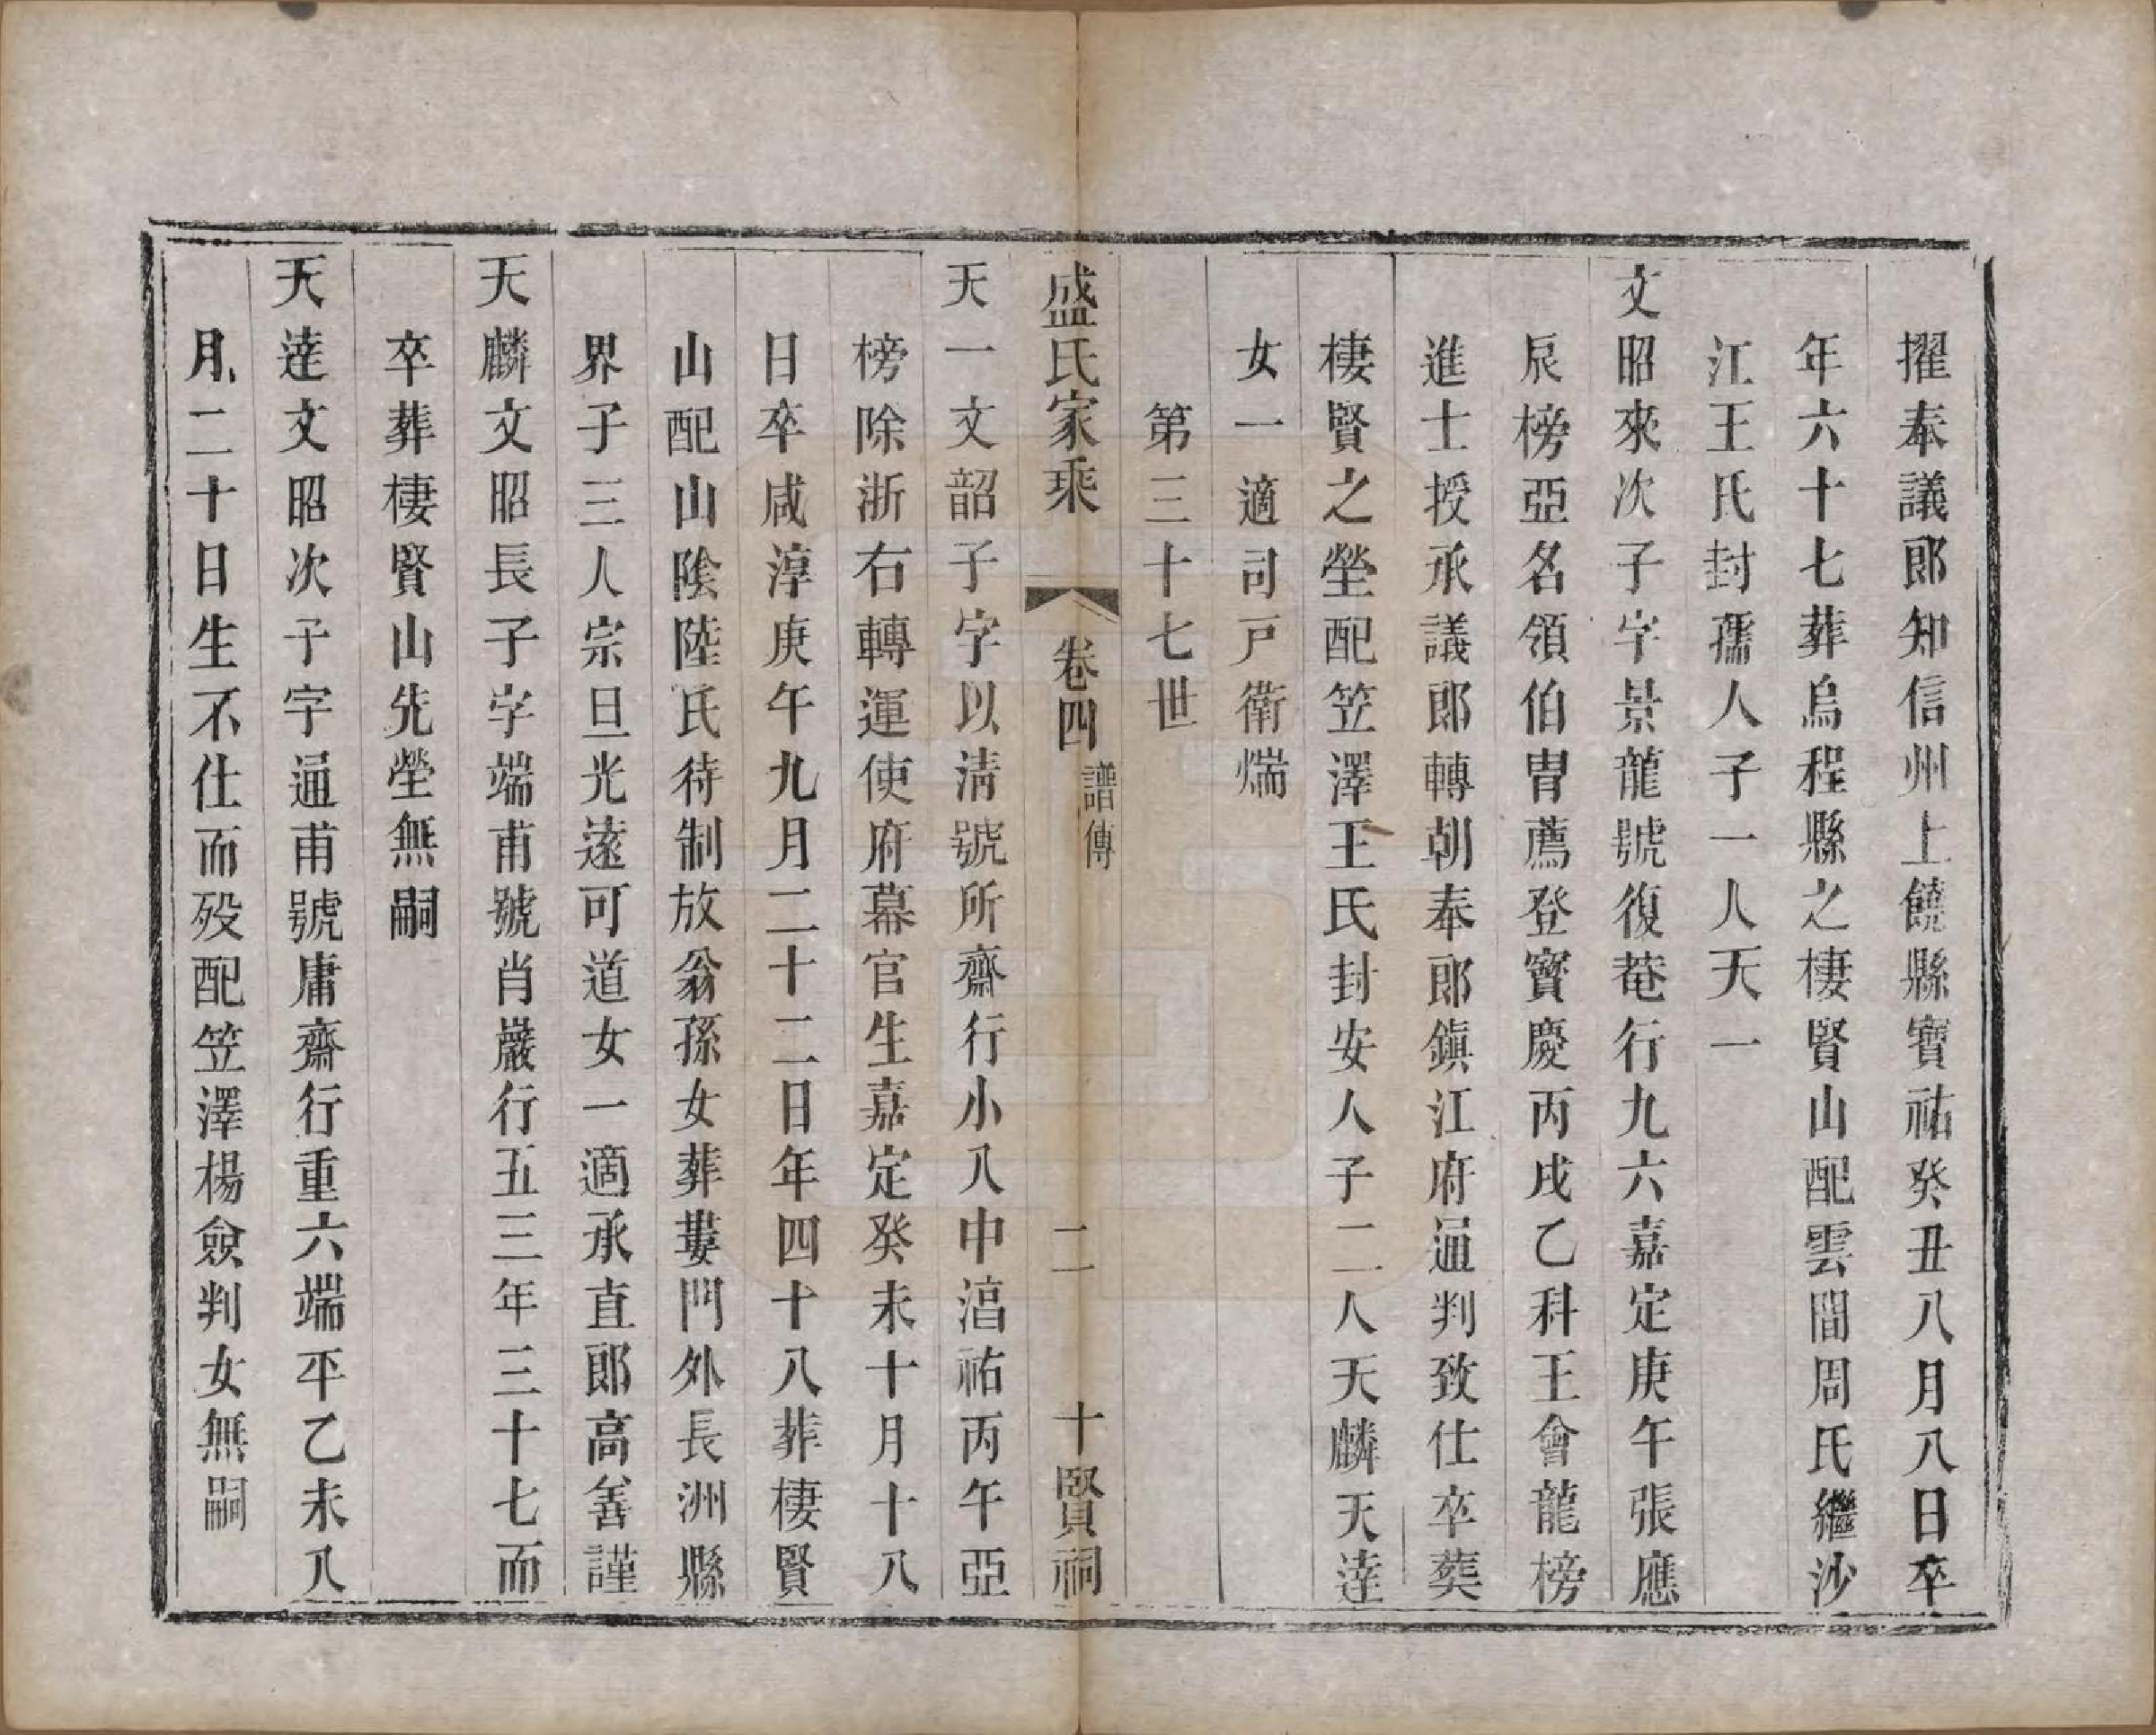 擢奉議郎知信州上饒縣寶祐癸丑八月八日卒
年六十七葬烏程縣之棲賢山配雲間周氏繼沙
江王氏封孺人子一人天一
文昭來次子字景龍號復菴行九六嘉定庚午張應
辰榜亞名領伯胄薦登寶慶丙戌乙科王會龍榜
進士授承議郎轉朝奉郎鎭江府通判致仕卒葬
棲賢之塋配笠澤王氏封安人子二人天麟天達
女一適司戸衛煓
第三十七世
盛氏家乘 卷四 譜傳 二 十賢祠
天一文韶子字以淸號所齋行小八中湻祐丙午亞
榜除浙右轉運使府幕官生嘉定癸未十月十八
日卒咸淳庚午九月二十二日年四十八葬棲賢
山配山陰陸氏待制放翁孫女葬婁門外長洲縣
界子三人宗旦光遠可道女一適承直郎高善謹
天麟文昭長子字端甫號肖巖行五三年三十七而
卒葬棲賢山先塋無嗣
天達文昭次子字通甫號庸齋行重六端平乙未八
月二十日生不仕而殁配笠澤楊僉判女無嗣